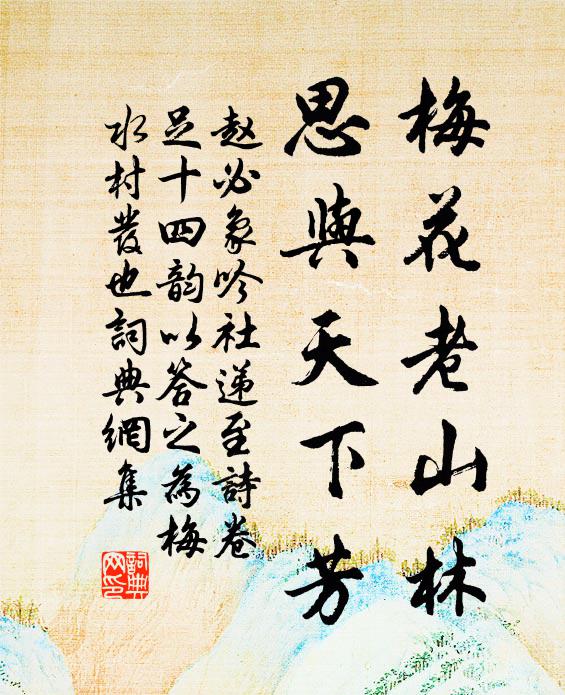 梅花老山林
思與天下芳
趙必象吟社递至詩卷
足十四韵以答之為梅
水村發也詞典網集
詞典
网印